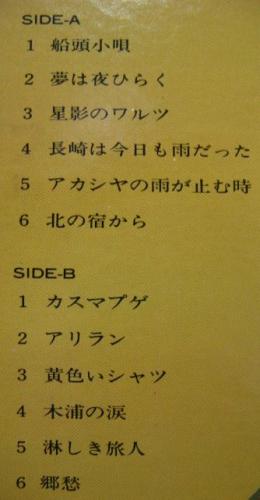 SIDE-A
1 船頭小唄
2 夢は夜ひらく
3 星影のワルツ
4 長崎は今日も雨だった
5 アカシヤの雨が止む時
6 北の宿から
SIDE-B
1 カスマプゲ
2 アリラン
3 黄色いシャツ
4 木浦の涙
5 淋しき旅人
6 郷愁